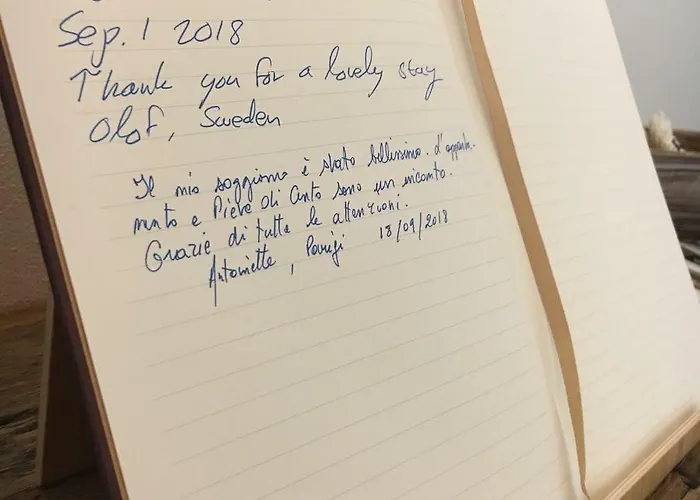 Sep. 1 2018
Thank you for a lovely stay
Olof, Sweden
Il mio soggiorno è stato bellissimo. d'apparta-
mento e Pieve di Cento sono un incanto.
Grazie di tutte le attenzioni.
Antoniette, Parigi 18/09/2018